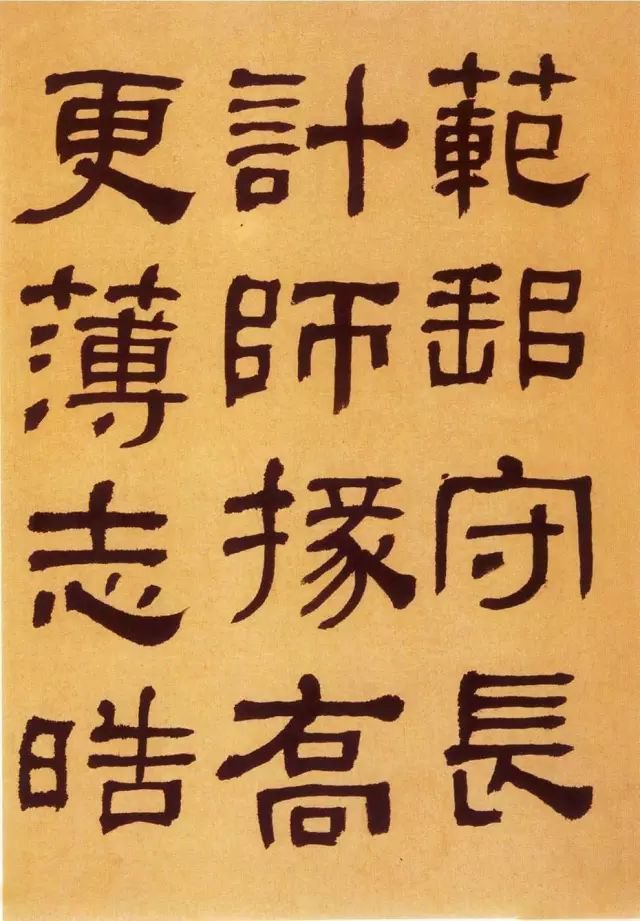 範郵守長
計師掾高
更薄志晧